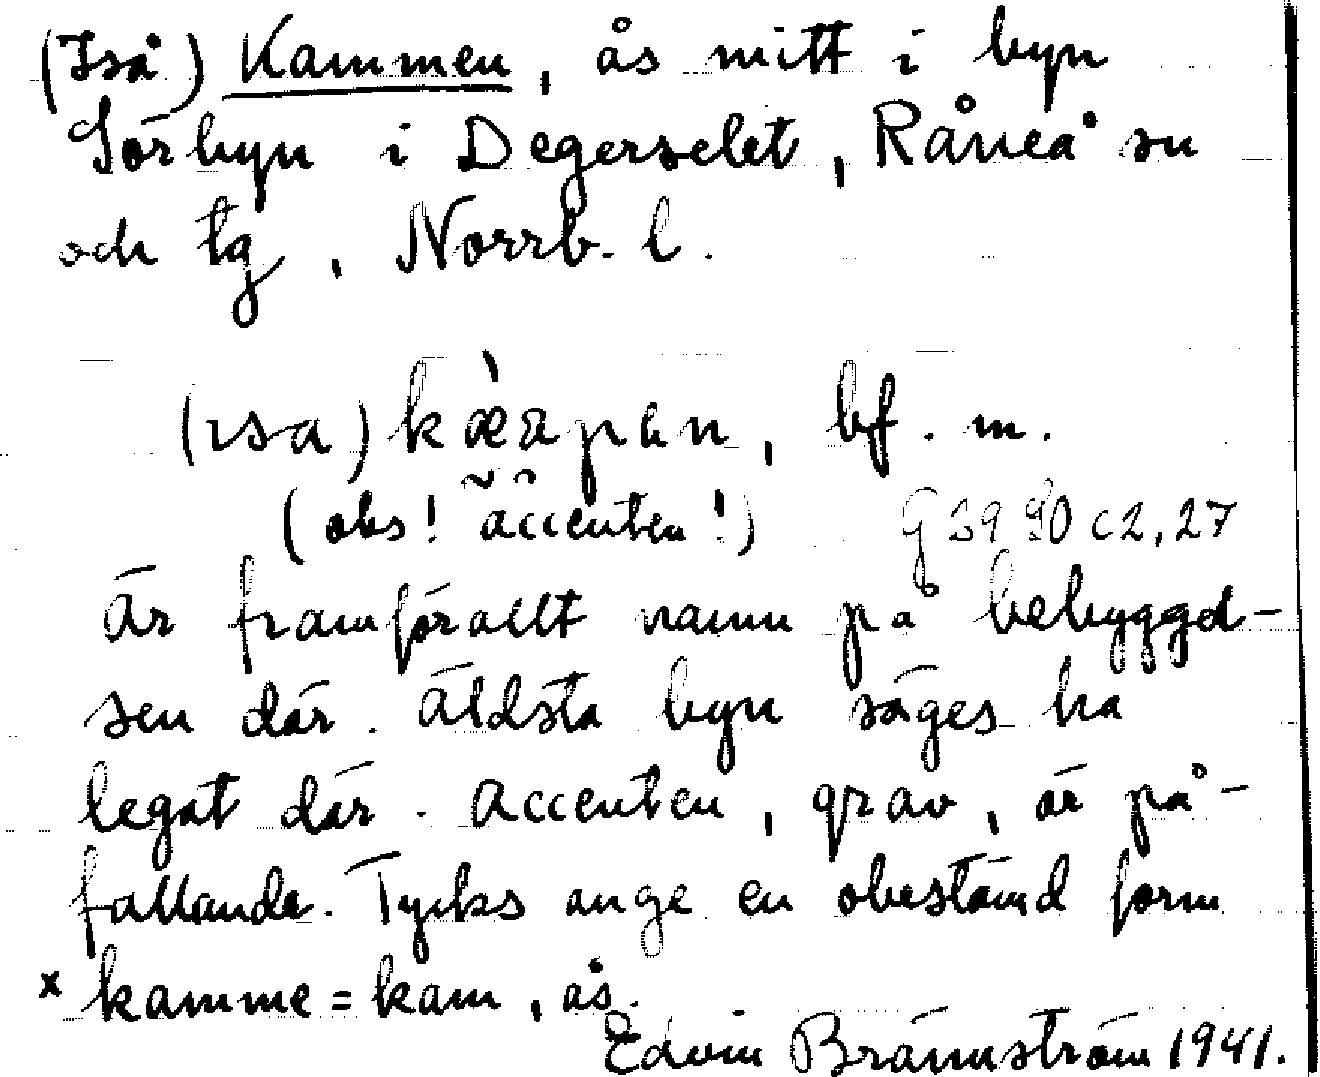 (Iså) Kammen, ås mitt i byn
Sörbyn i Degerselet, Råneå sn
och tg, Norrb. l.
(ɩsa) kæ̀apen, bf. m.
(obs! accenten!) G 39 90 c2, 27
Är framförallt namn på bebyggd-
sen där. Äldsta byn säges ha
legat där. Accenten, grav, är på-
fallande. Tycks ange en obestämd form
* kamme = kam, ås.
Edvin Brännström 1941.